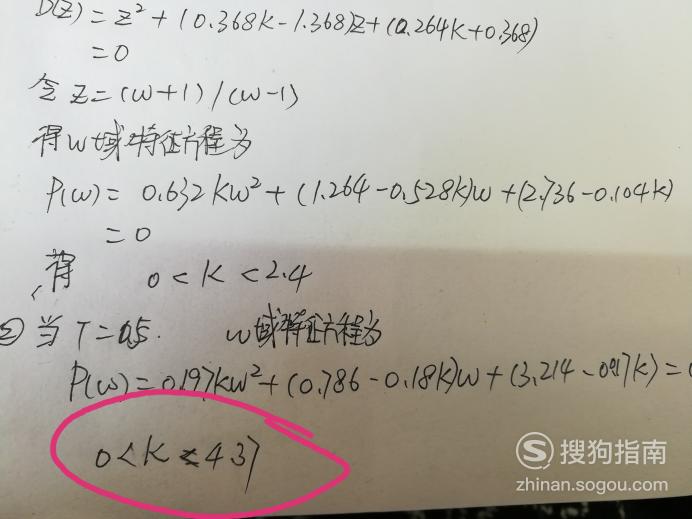 D(z) = z² + (0.368K-1.368)z + (0.264K+0.368)
=0
令 z = (w+1) / (w-1)
得w域特征方程为
P(w) = 0.632Kw² + (1.264-0.528K)w + (2.736-0.104K)
=0
得 0 < K < 2.4
② 当 T=0.5. w域特征方程为
P(w) = 0.197Kw² + (0.786-0.18K)w + (3.214-0.17K) =0
0 < K < 4.37
搜狗指南
zhinan.sogou.com